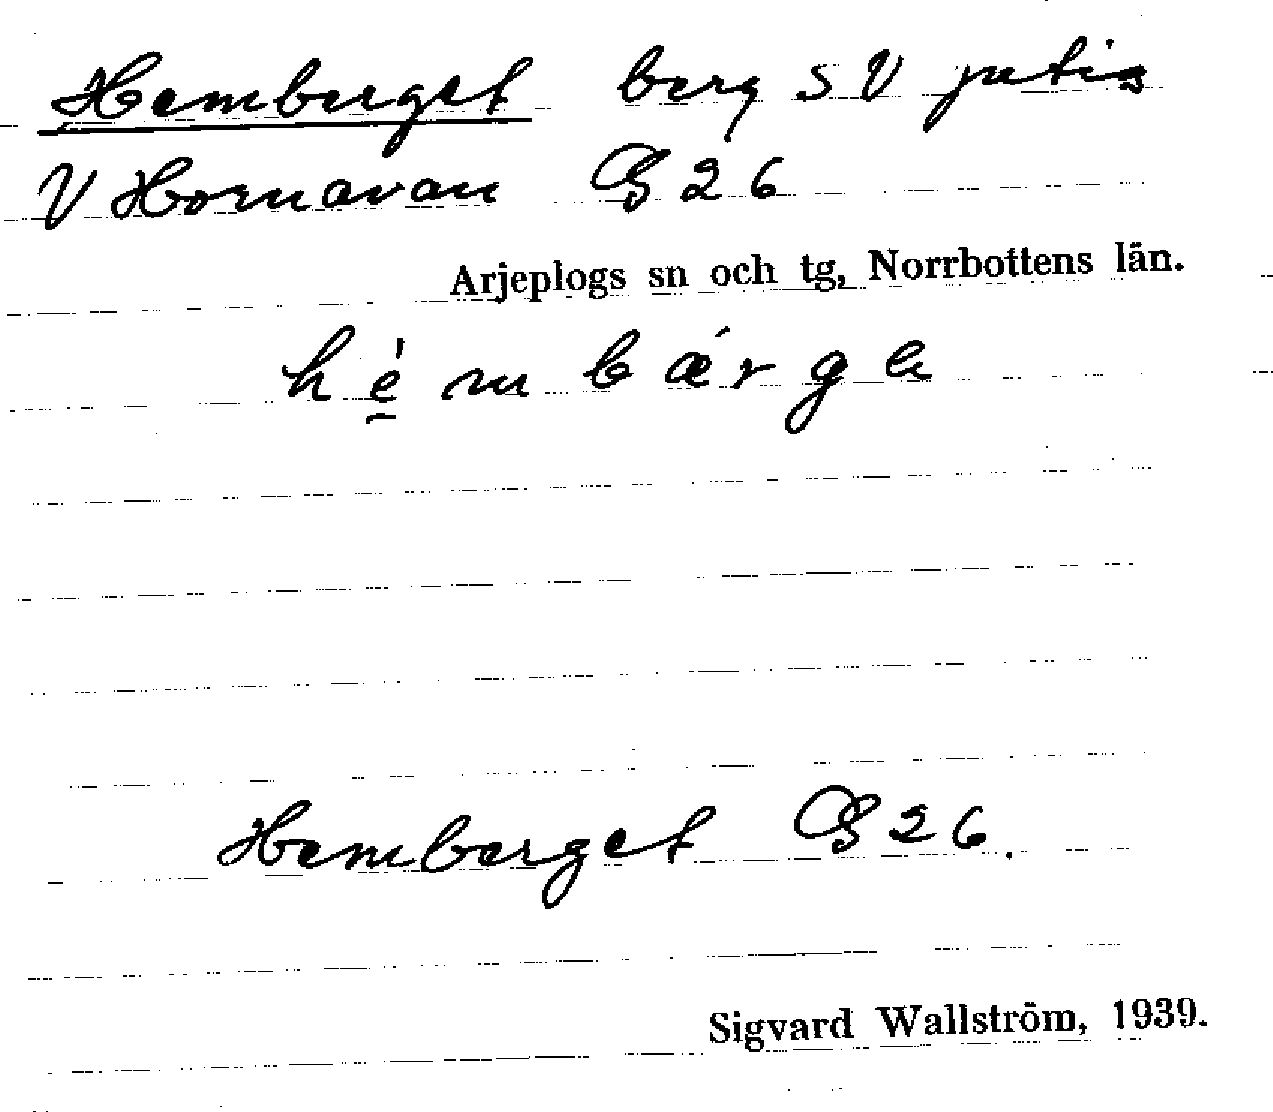 Hemberget berg SV jutis
V Hornavan GS 26
Arjeplogs sn och tg, Norrbottens län.
hé̱m bǽrge
Hemberget GS 26.
Sigvard Wallström, 1939.